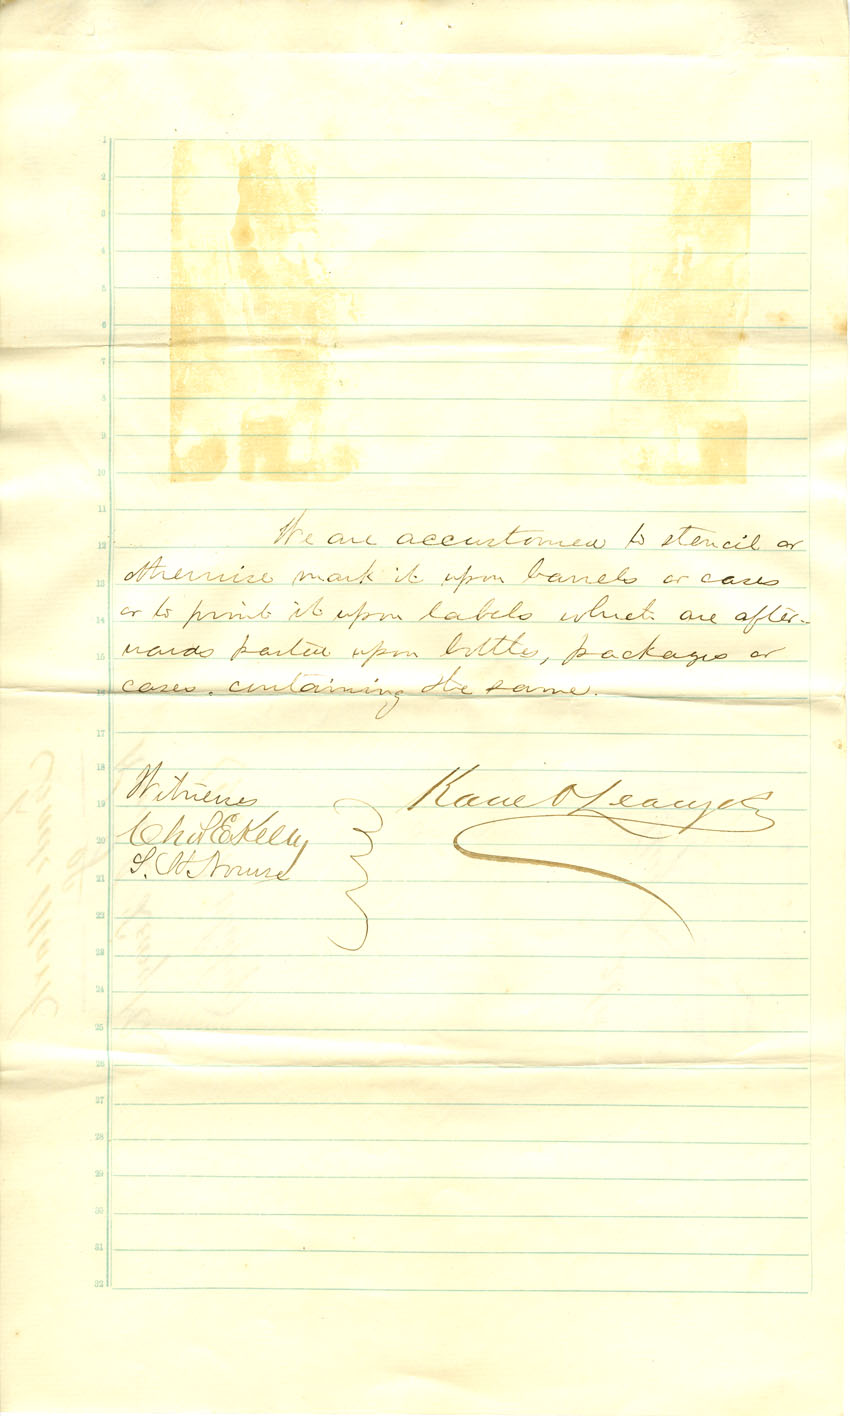 1
2
3
4
5
6
7
8
9
10
11
12 We are accustomed to stencil or
13 otherwise mark it upon barrels or cases
14 or to print it upon labels which are after-
15 wards pasted upon bottles, packages or
16 cases. containing the same.
17
18
19 Witnesses Kane O'Leary & Co
20 Chas E Kelly
21 S. H. Nourse
22
23
24
25
26
27
28
29
30
31
32